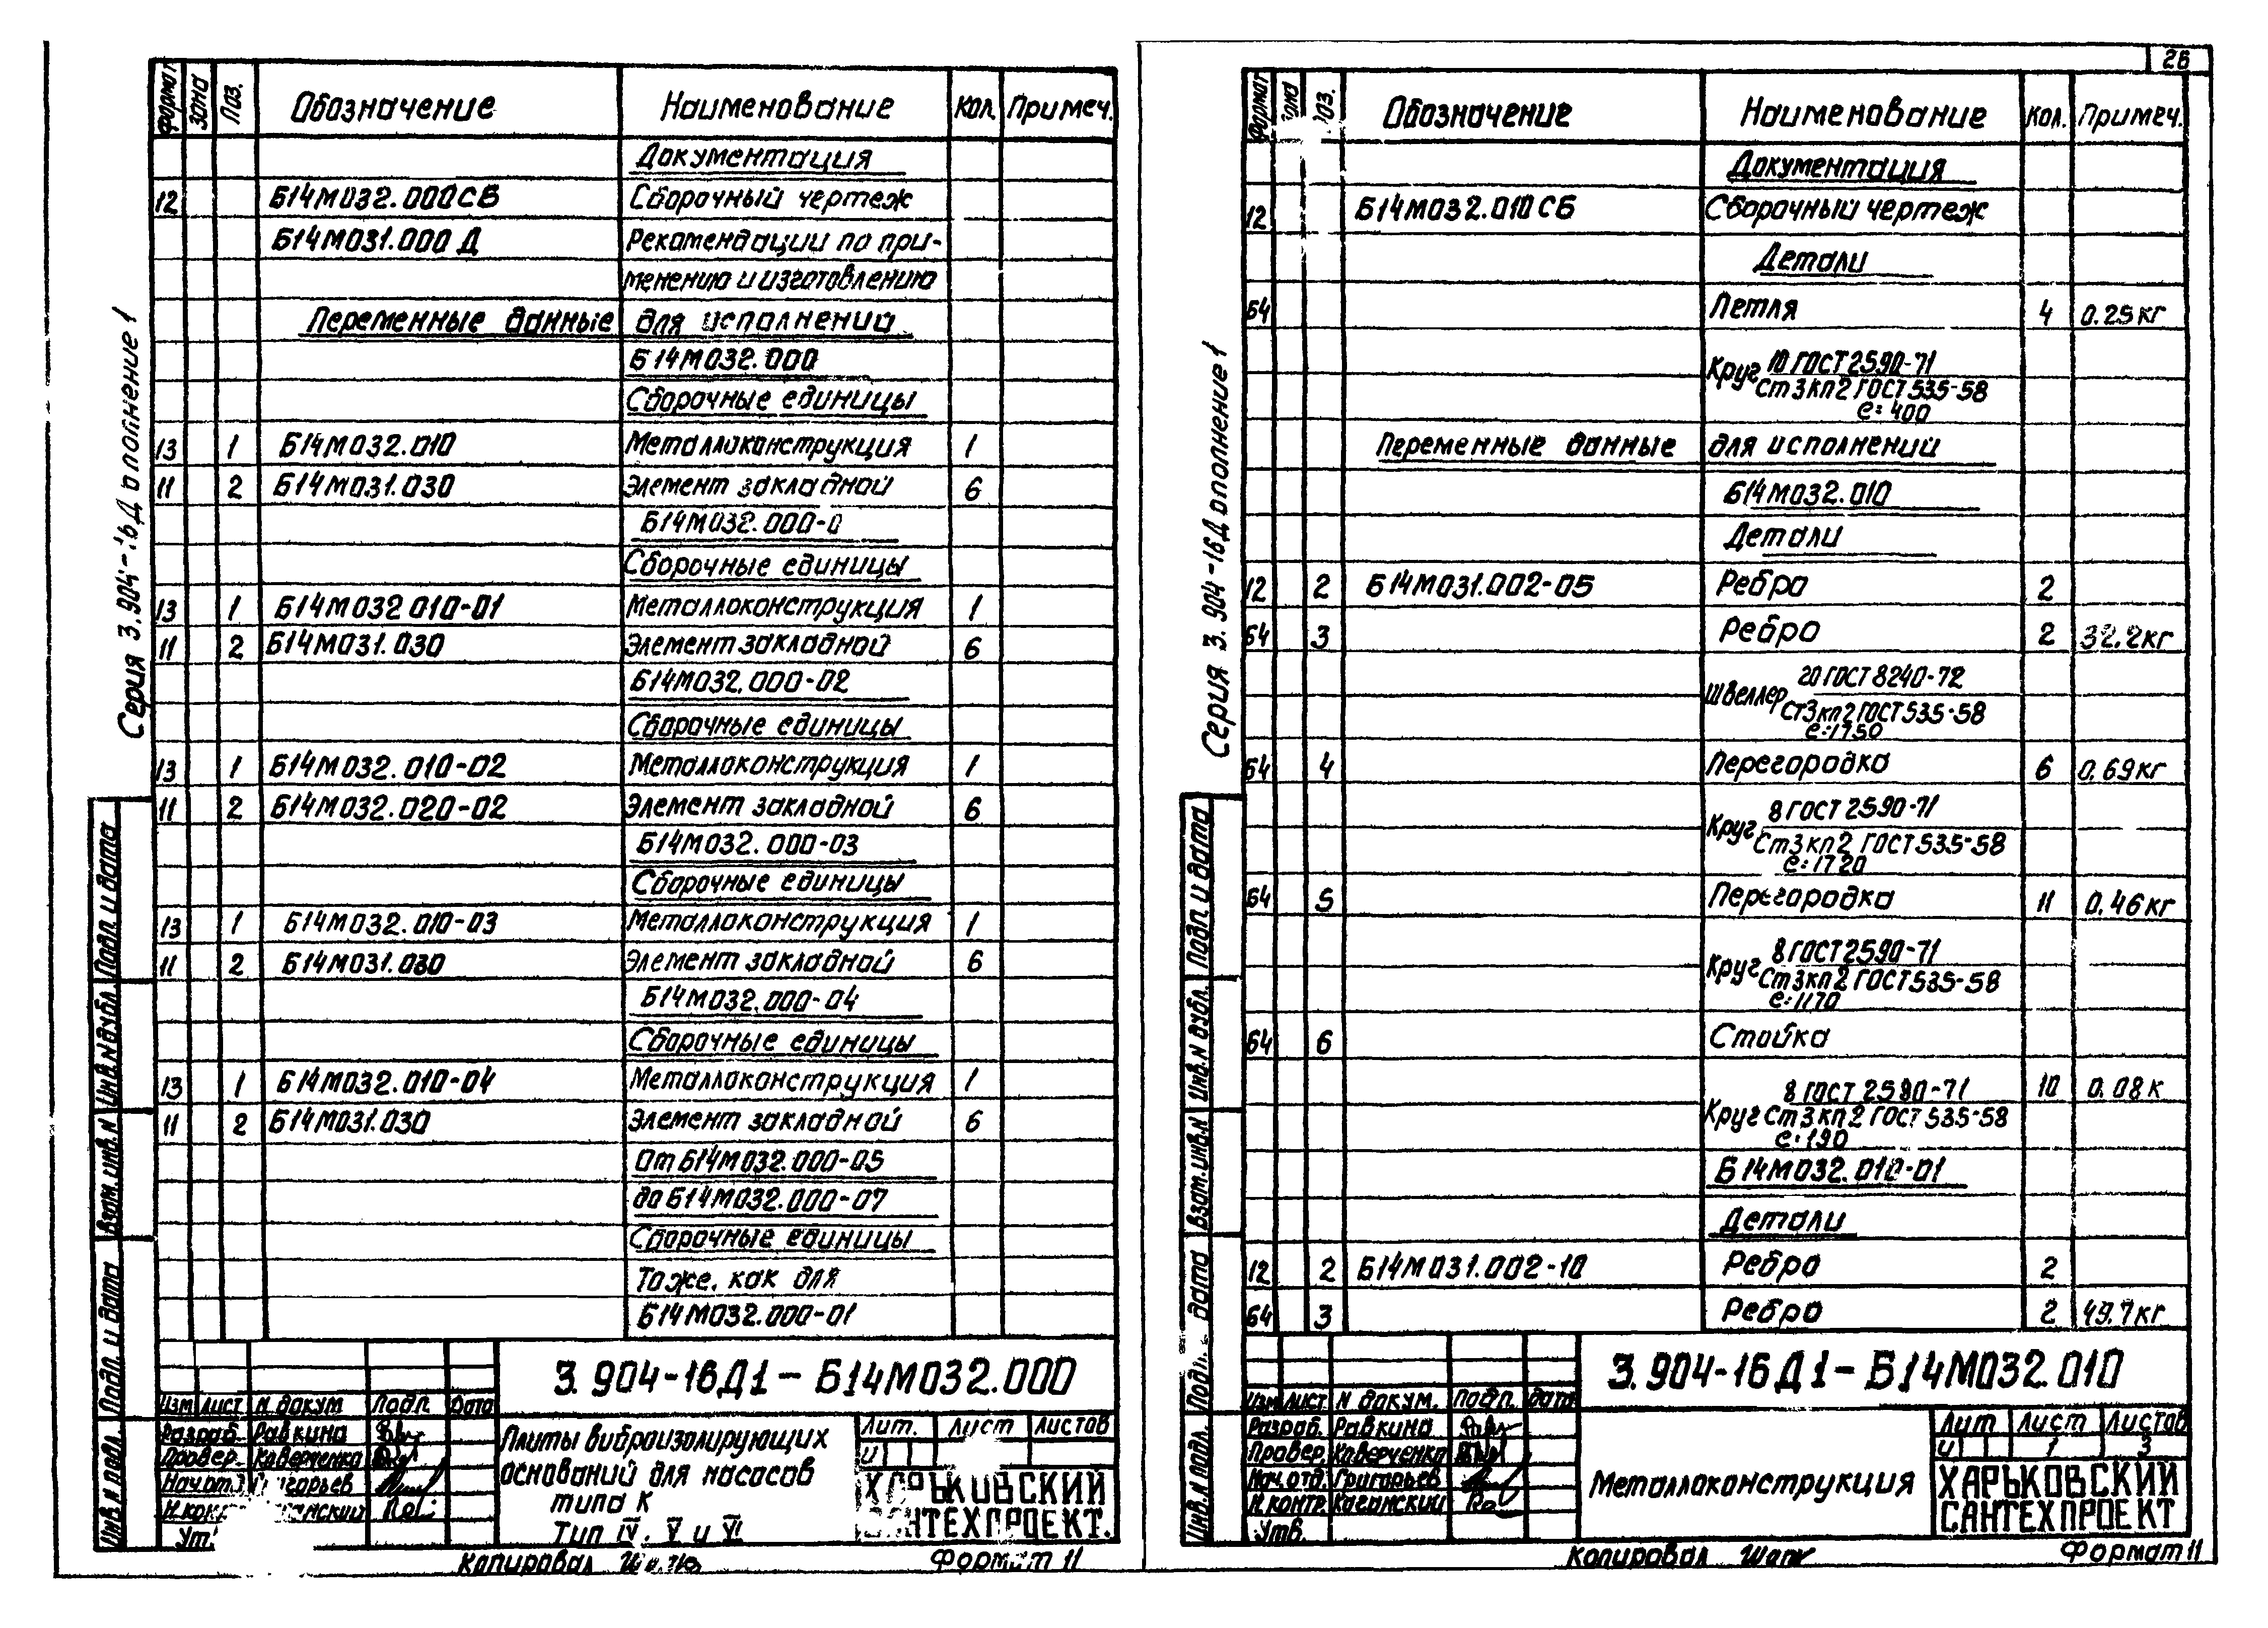 26
Формат Зона Поз. Обозначение Наименование Кол. Примеч.
Документация
12 Б14М032.000СБ Сборочный чертеж
Б14М031.000 Д Рекомендации по при-
менению и изготовлению
Переменные данные для исполнений
Б14М032.000
Сборочные единицы
13 1 Б14М032.010 Металлоконструкция 1
11 2 Б14М031.030 Элемент закладной 6
Б14М032.000-0
Сборочные единицы
13 1 Б14М032 010-01 Металлоконструкция 1
11 2 Б14М031.030 Элемент закладной 6
Б14М032.000-02
Сборочные единицы
13 1 Б14М032.010-02 Металлоконструкция 1
11 2 Б14М032.020-02 Элемент закладной 6
Б14М032.000-03
Сборочные единицы
13 1 Б14М032.010-03 Металлоконструкция 1
11 2 Б14М031.030 Элемент закладной 6
Б14М032.000-04
Сборочные единицы
13 1 Б14М032.010-04 Металлоконструкция 1
11 2 Б14М031.030 Элемент закладной 6
От Б14М032.000-05
до Б14М032.000-07
Сборочные единицы
Тоже, как для
Б14М032.000-01
Серия 3.904-16Дополнение 1
Подп. и дата
Инв.N дубл.
Взам. инв. N
Подп. и дата
Инв. N подл.
3.904-16Д1-Б14М032.000
Изм Лист N докум Подп. Дата
Разраб. Равкина
Провер. Каверченко
Нач.от
Н.кон
Ут.
Плиты виброизолирующих
оснований для насосов
типа К
Тип IV, V и VI
Лит. Лист Листов
и
ХАРЬКОВСКИЙ
САНТЕХПРОЕКТ.
Копировал
Формат 11
Формат Зона Поз. Обозначение Наименование Кол. Примеч.
Документация
12 Б14М032.010СБ Сборочный чертеж
Детали
Б4 Петля 4 0.25кг
Круг 10 ГОСТ 2590-71
Ст3кп2 ГОСТ 535-58
е=400
Переменные данные для исполнений
Б14М032.010
Детали
12 2 Б14М031.002-05 Ребро 2
Б4 3 Ребро 2 32.2кг
Швеллер 20 ГОСТ 8240-72
Ст3кп2 ГОСТ 535-58
е=1750
Б4 4 Перегородка 6 0.69кг
Круг 8 ГОСТ 2590-71
Ст3кп2 ГОСТ 535-58
е=1720
Б4 5 Перегородка 11 0.46кг
Круг 8 ГОСТ 2590-71
Ст3кп2 ГОСТ 535-58
е=1170
Б4 6 Стойка
8 ГОСТ 2590-71 10 0.08к
Круг Ст3кп2 ГОСТ 535-58
е=190
Б14М032.010-01
Детали
12 2 Б14М031.002-10 Ребро 2
Б4 3 Ребро 2 49.7кг
Серия 3.904-16Дополнение 1
Подп. и дата
Инв.N дубл.
Взам.инв.N
Подп. дата
Инв.N подл.
3.904-16Д1-Б14М032.010
Изм Лист N докум. Подп. Дата
Разраб. Равкина
Провер. Каверченко
Нач.отд. Григорьев
Н.контр. Каганский
Утв.
Металлоконструкция
Лит Лист Листов
и 1 3
ХАРЬКОВСКИЙ
САНТЕХПРОЕКТ
Копировал
Формат 11